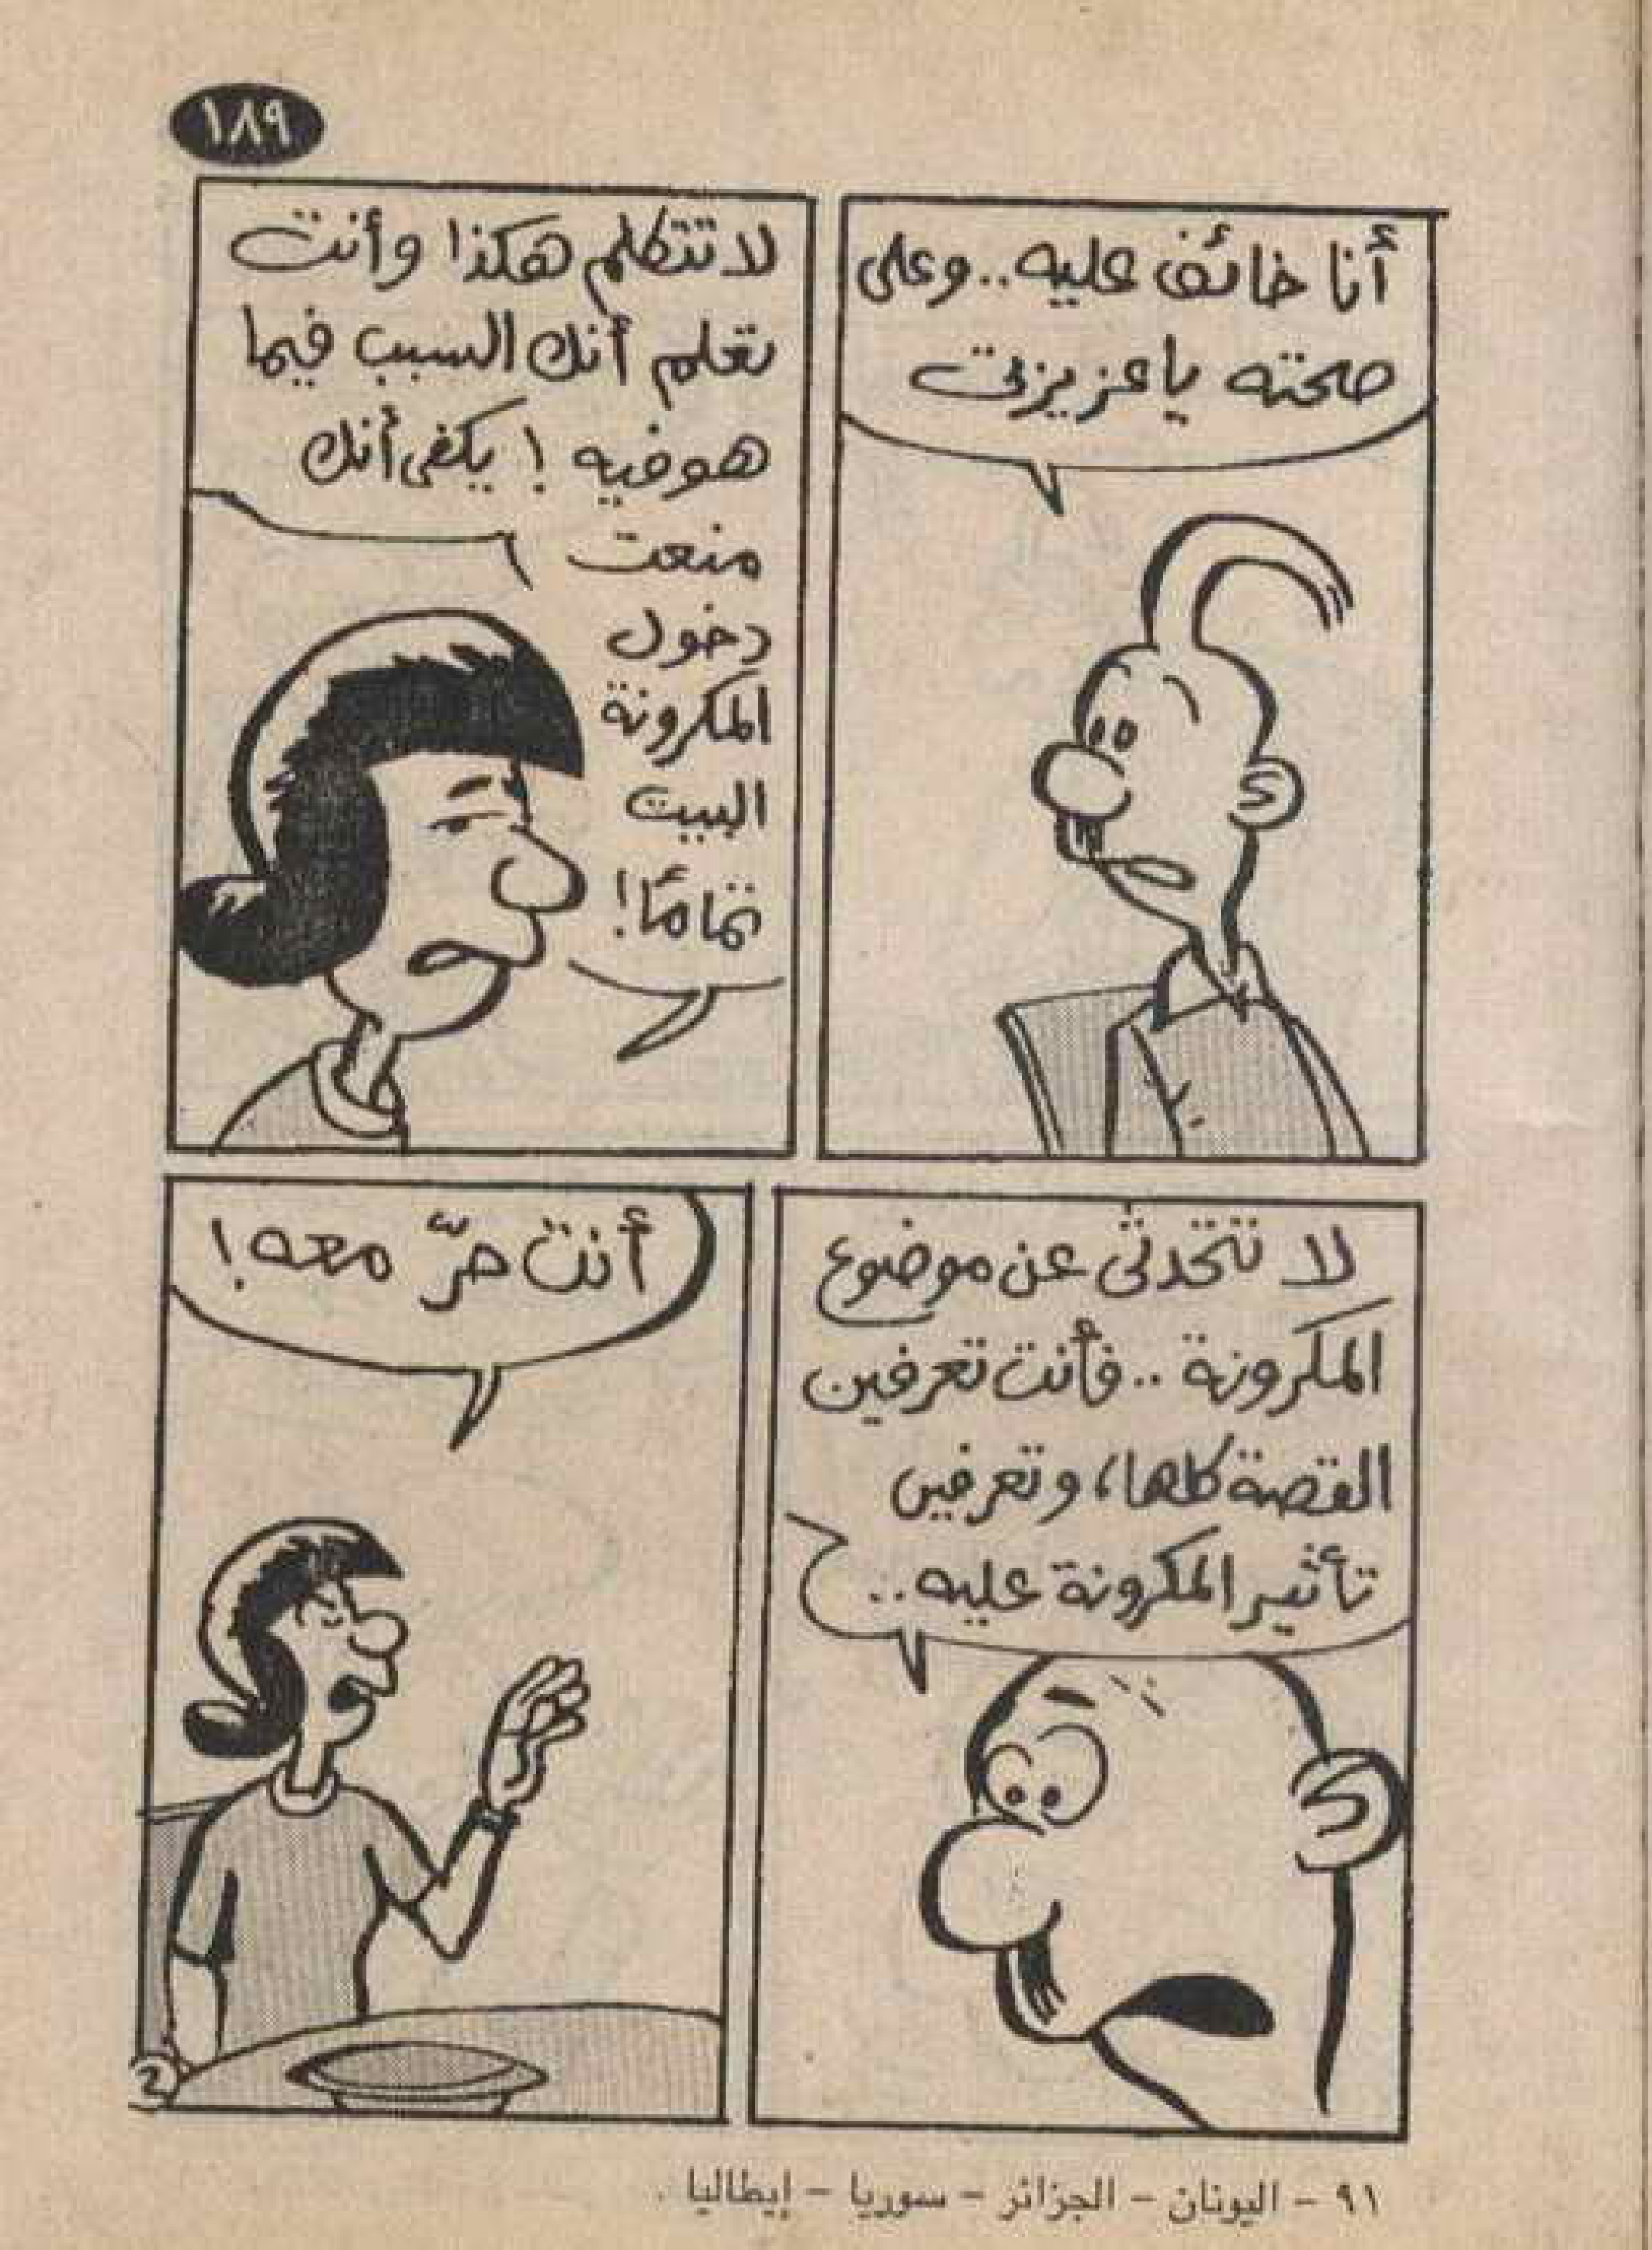 ١٨٩
أنا خائف عليه..وعلى
صحته يا عزيزتى
لا تتكلم هكذا وأنت
تعلم أنك السبب فيما
هو فيه ! يكفى أنك
منعت
دخول
المكرونة
البيت
تمامًا!
لا تتحدثى عن موضوع
المكرونة ..فأنت تعرفين
القصة كلها، وتعرفين
تأثير المكرونة عليه..
أنت حرّ معه!
٩١ - اليونان - الجزائر - سوريا - إيطاليا .